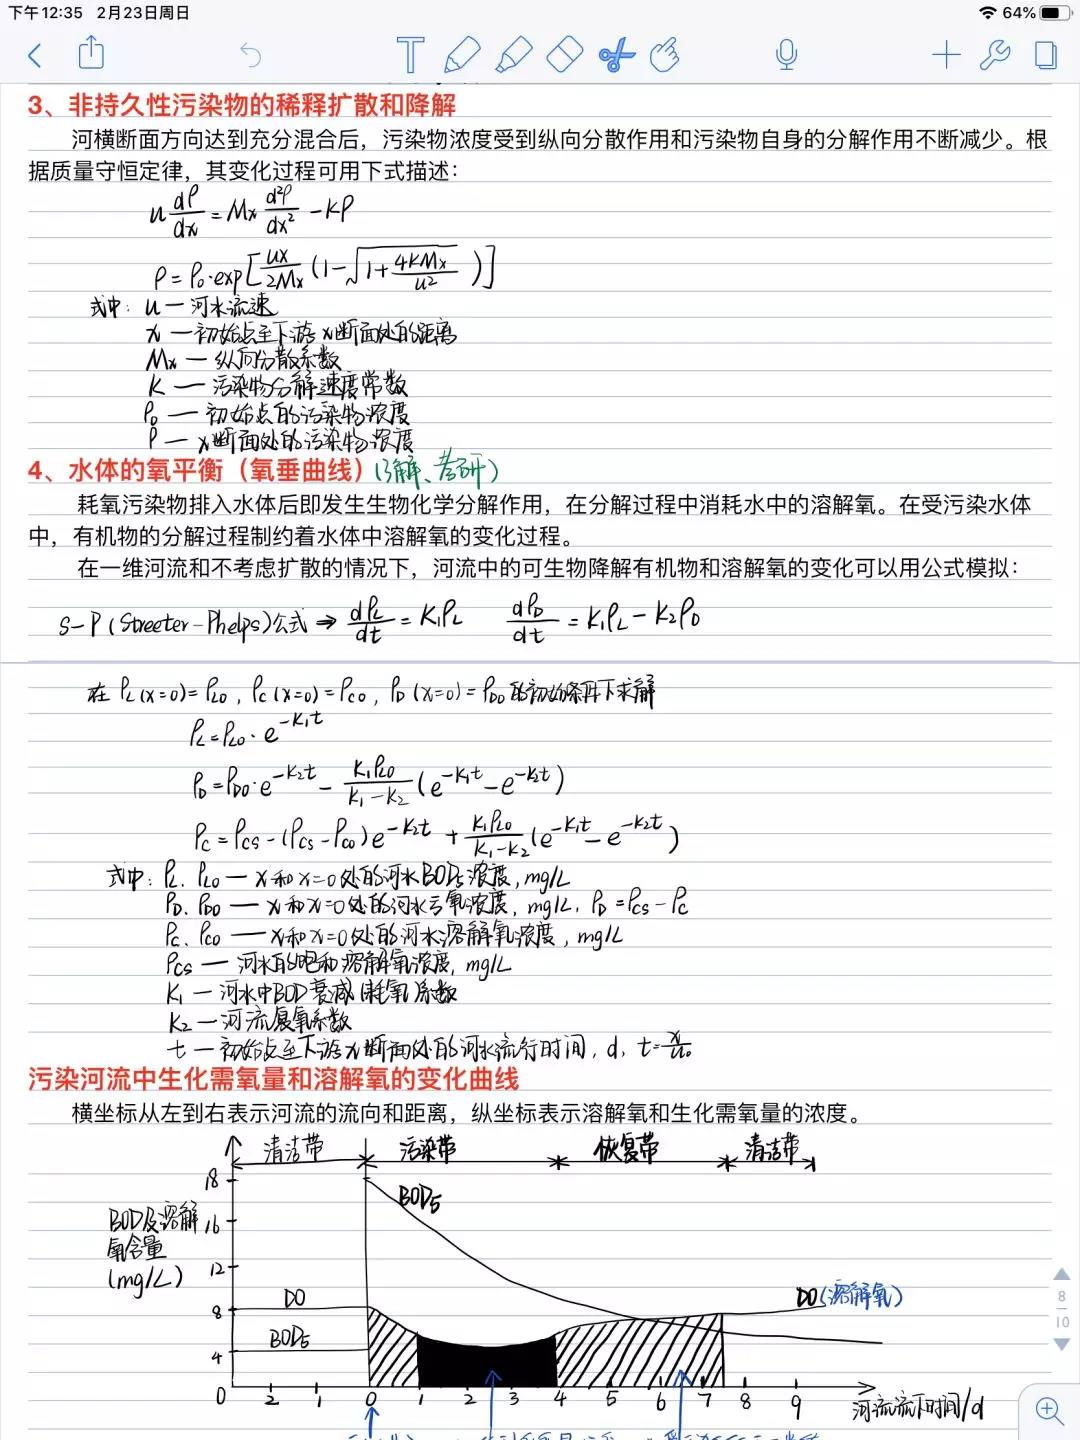 下午12:35 2月23日周日
64%
3、非持久性污染物的稀释扩散和降解
河横断面方向达到充分混合后，污染物浓度受到纵向分散作用和污染物自身的分解作用不断减少。根
据质量守恒定律，其变化过程可用下式描述：
u dρ/dx = Mx d²ρ/dx² - Kρ
ρ = ρ0·exp[ux/2Mx (1-√(1+4KMx/u²))]
式中：u — 河水流速
x — 初始点至下游x断面处的距离
Mx — 纵向分散系数
K — 污染物分解速度常数
ρ0 — 初始点的污染物浓度
ρ — x断面处的污染物浓度
4、水体的氧平衡（氧垂曲线）(了解、考研)
耗氧污染物排入水体后即发生生物化学分解作用，在分解过程中消耗水中的溶解氧。在受污染水体
中，有机物的分解过程制约着水体中溶解氧的变化过程。
在一维河流和不考虑扩散的情况下，河流中的可生物降解有机物和溶解氧的变化可以用公式模拟：
S-P(Streeter-Phelps)公式 ⇒ dρL/dt = K1ρL dρD/dt = K1ρL - K2ρD
在 ρL(x=0)=ρL0, ρC(x=0)=ρC0, ρD(x=0)=ρD0的初始条件下求解
ρL=ρL0·e^-K1t
ρD=ρD0·e^-K2t - K1ρL0/K1-K2 (e^-K1t - e^-K2t)
ρC=ρCS-(ρCS-ρC0)e^-K2t + K1ρL0/K1-K2 (e^-K1t - e^-K2t)
式中：ρL、ρL0 — x和x=0处的河水BOD5浓度, mg/L
ρD、ρD0 — x和x=0处的河水亏氧浓度, mg/L, ρD=ρCS-ρC
ρC、ρC0 — x和x=0处的河水溶解氧浓度, mg/L
ρCS — 河水的饱和溶解氧浓度, mg/L
K1 — 河水中BOD衰减(耗氧)系数
K2 — 河流复氧系数
t — 初始点至下游x断面处的河水流行时间, d, t=x/u。
污染河流中生化需氧量和溶解氧的变化曲线
横坐标从左到右表示河流的流向和距离，纵坐标表示溶解氧和生化需氧量的浓度。
清洁带 污染带 恢复带 清洁带
18
BOD5
BOD及溶解 16
氧含量
(mg/L) 12
DO DO(溶解氧)
8
BOD5
4
0 2 1 0 1 2 3 4 5 6 7 8 9 河流流下时间/d
8
10